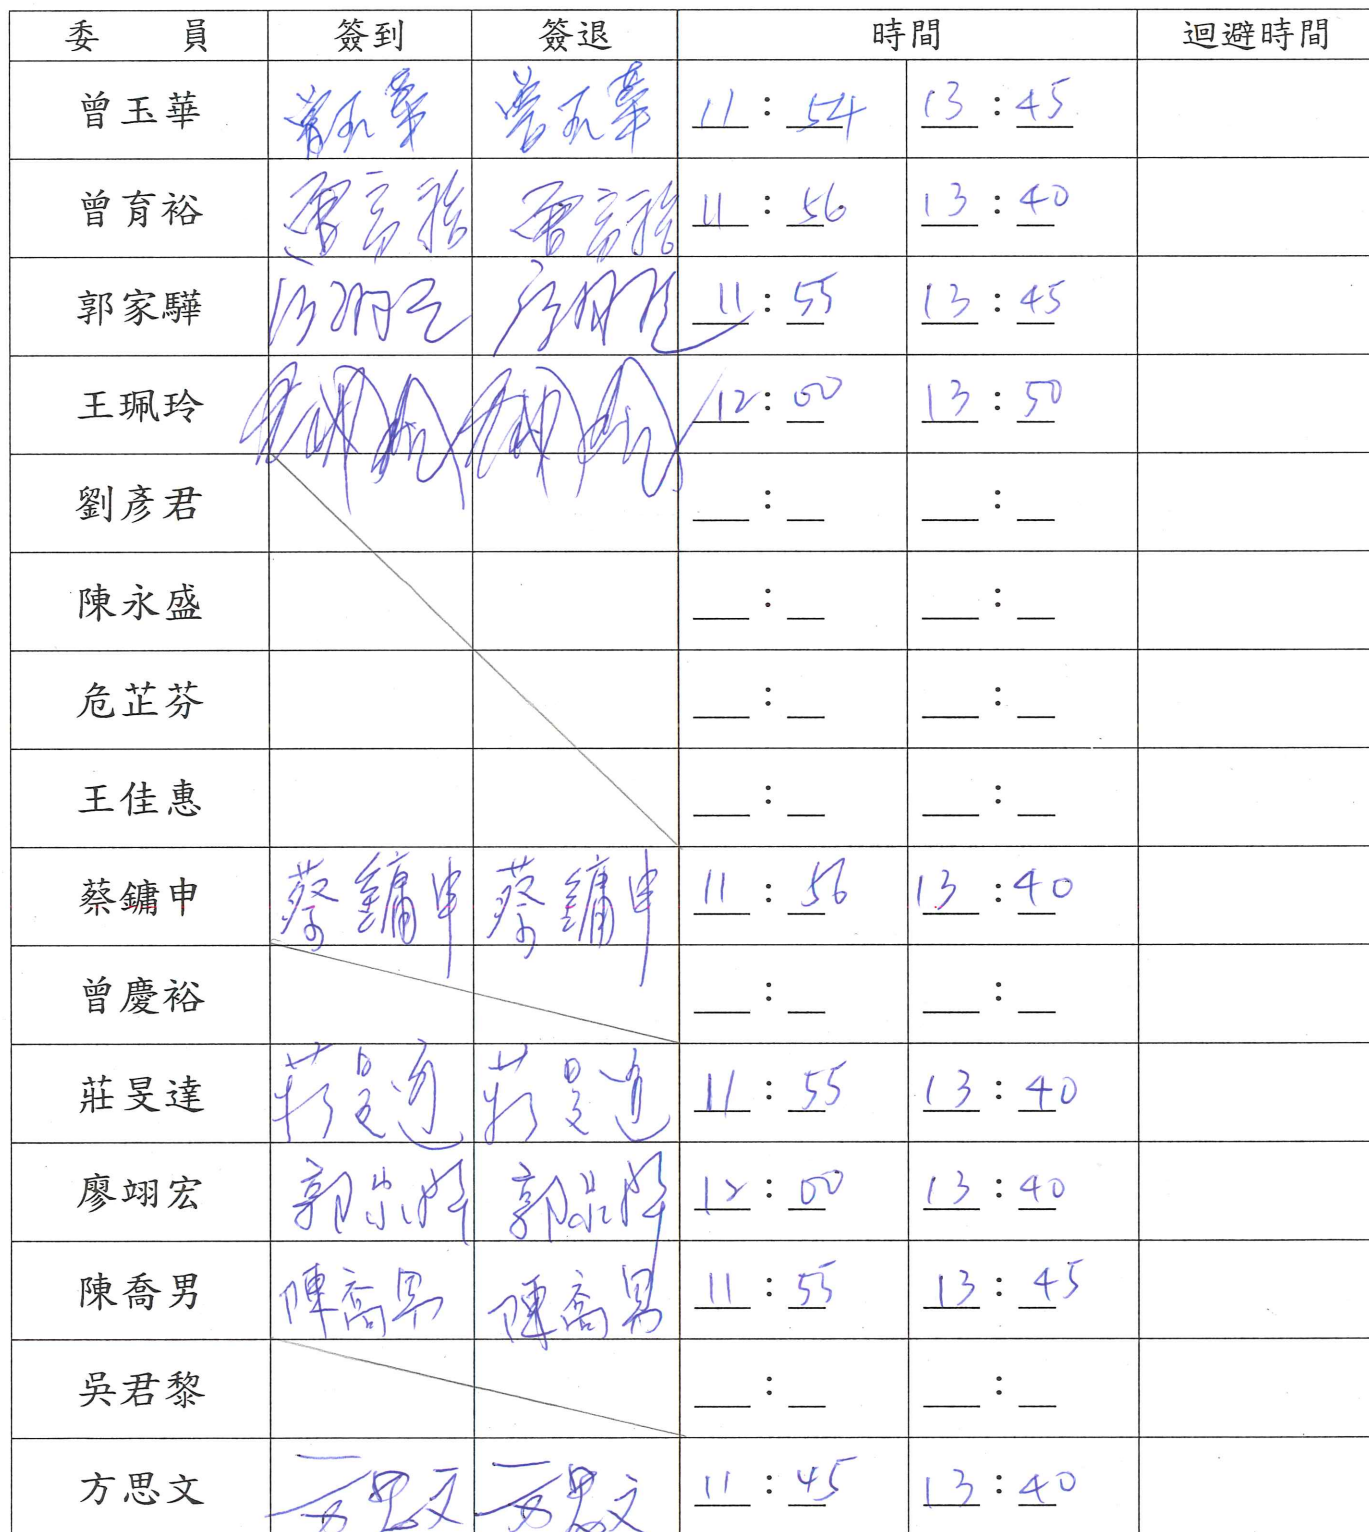 委 員 簽到 簽退 時間 迴避時間
曾玉華 曾玉華 曾玉華 11:54 13:45
曾育裕 曾育裕 曾育裕 11:56 13:40
郭家驊 11:55 13:45
王珮玲 12:00 13:50
劉彥君 __:__ __:__
陳永盛 __:__ __:__
危芷芬 __:__ __:__
王佳惠 __:__ __:__
蔡鏞申 蔡鏞申 蔡鏞申 11:56 13:40
曾慶裕 __:__ __:__
莊旻達 莊旻達 莊旻達 11:55 13:40
廖翊宏 12:00 13:40
陳喬男 陳喬男 陳喬男 11:55 13:45
吳君黎 __:__ __:__
方思文 方思文 方思文 11:45 13:40